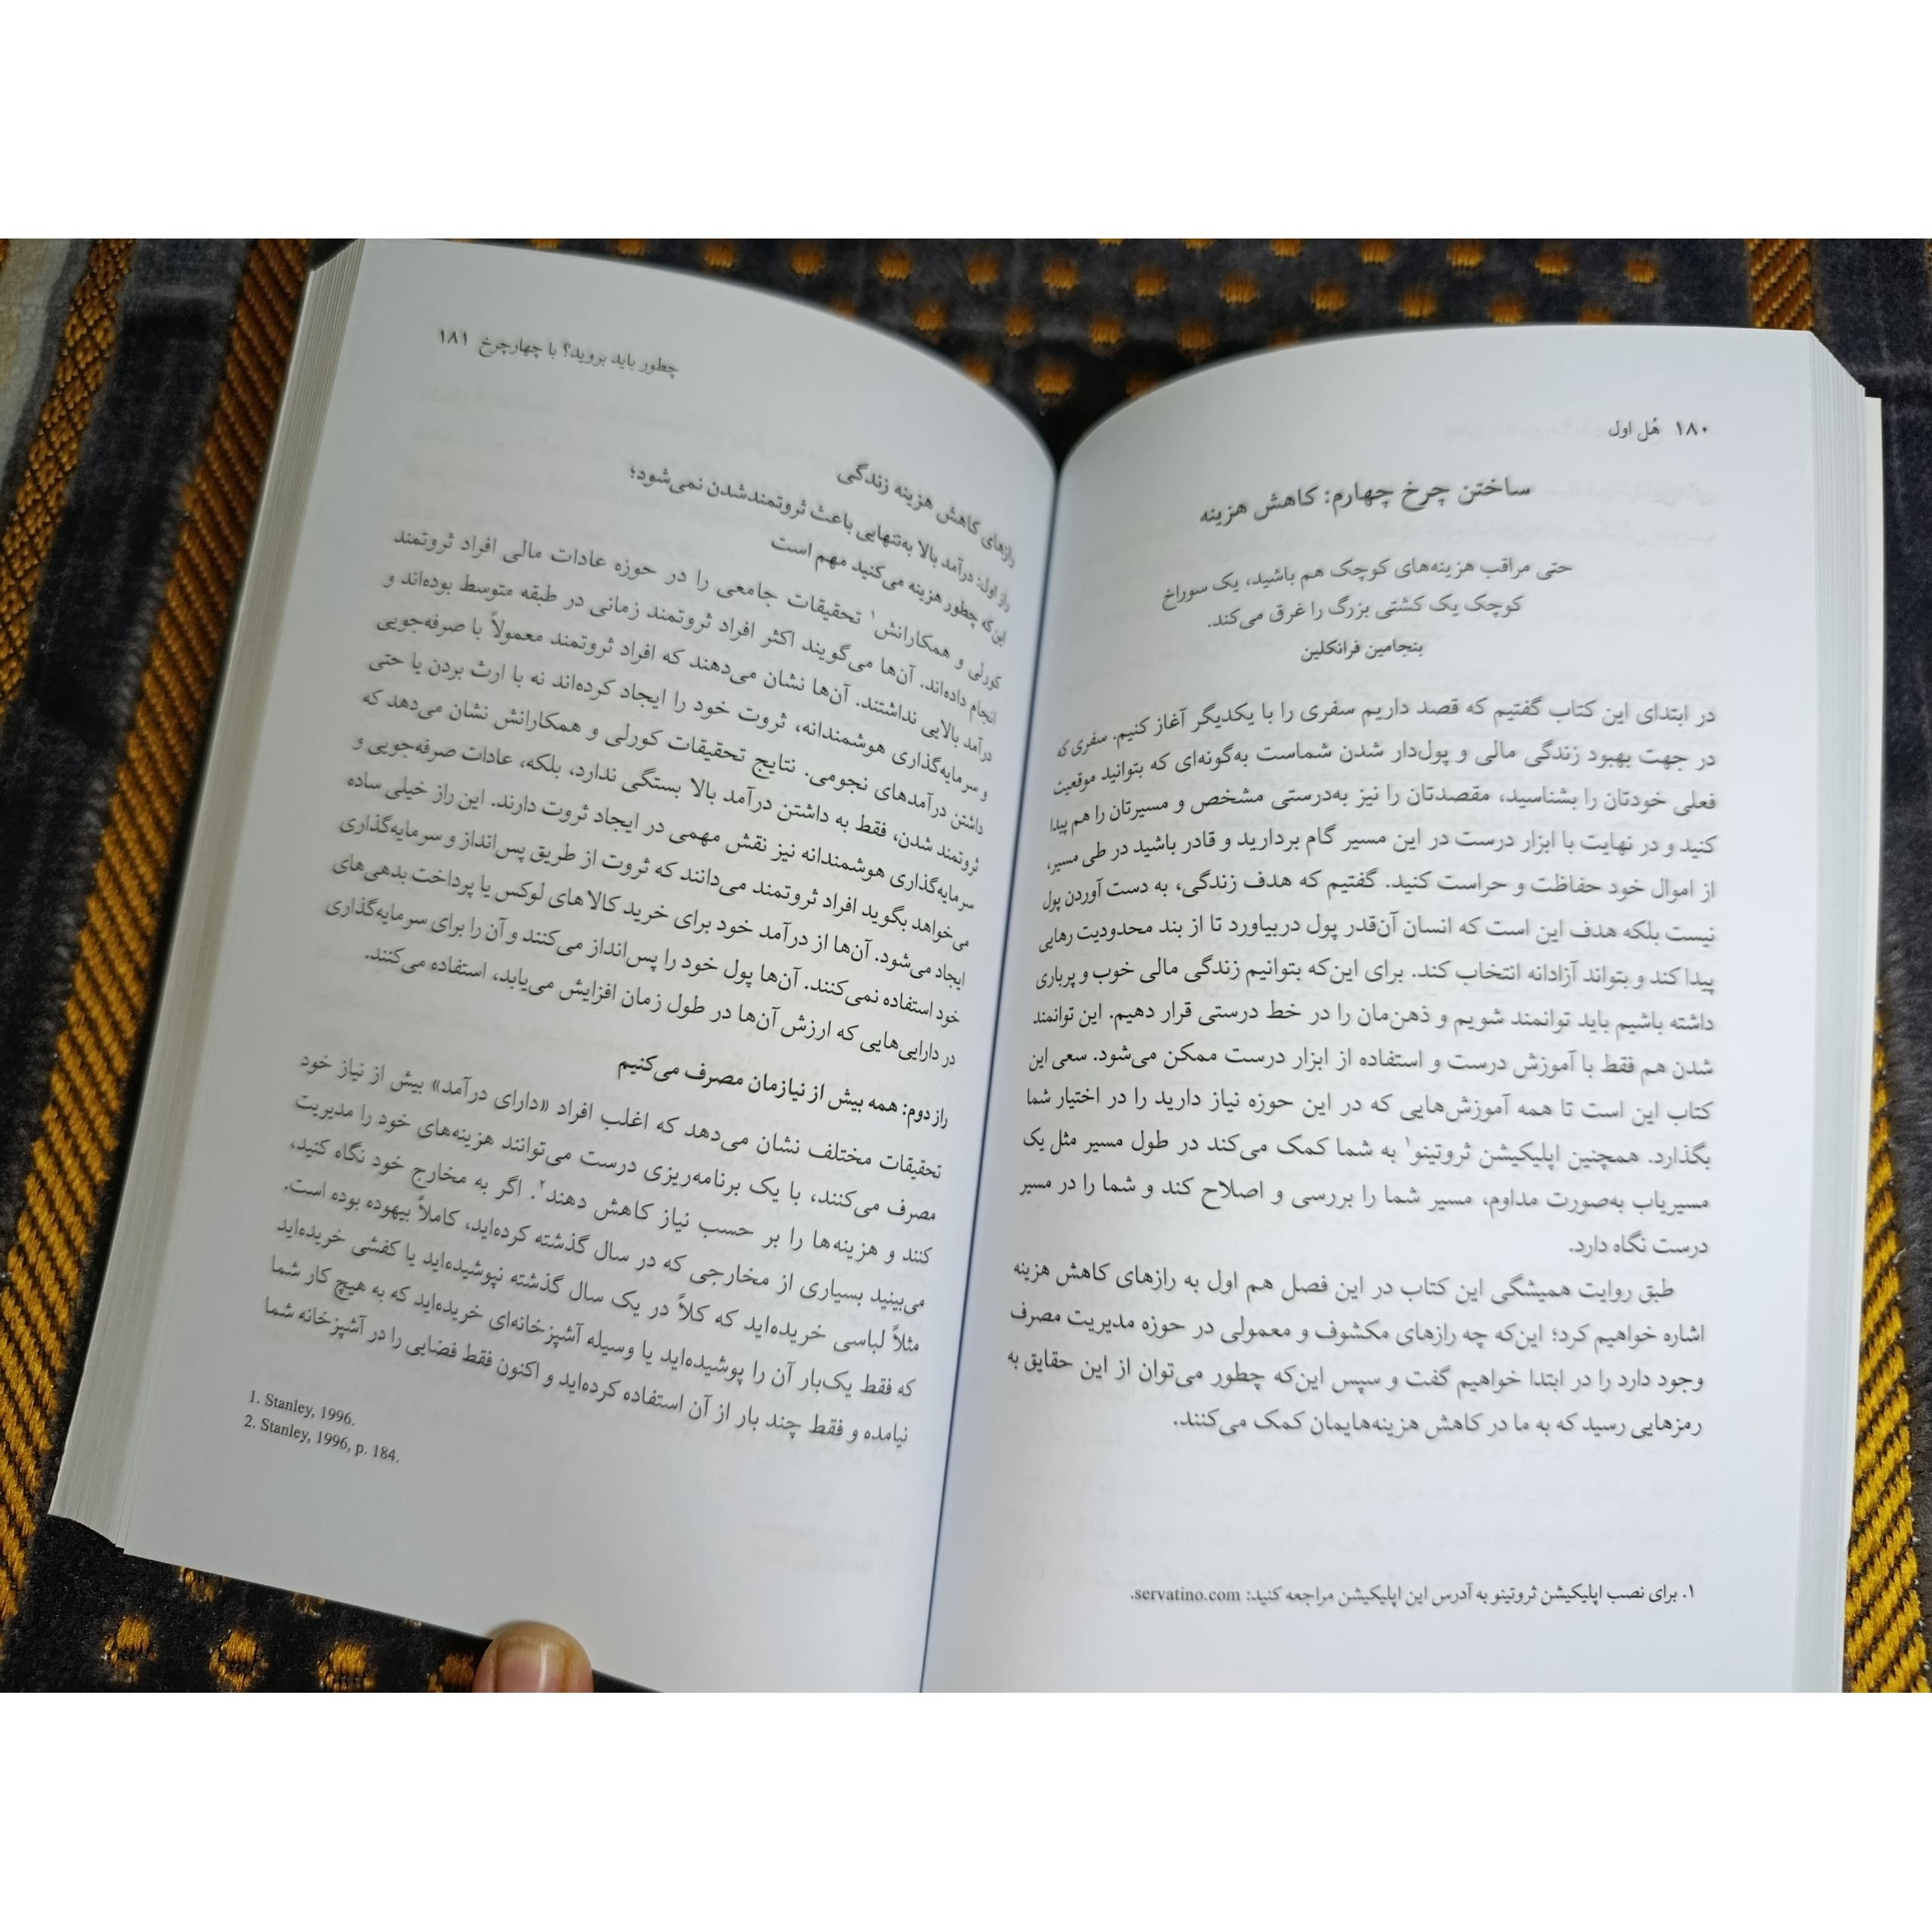 ۱۸۰ هُل اول
ساختن چرخ چهارم: کاهش هزینه
حتی مراقب هزینه‌های کوچک هم باشید، یک سوراخ
کوچک یک کشتی بزرگ را غرق می‌کند.
بنجامین فرانکلین
در ابتدای این کتاب گفتیم که قصد داریم سفری را با یکدیگر آغاز کنیم. سفری که
در جهت بهبود زندگی مالی و پول‌دار شدن شماست به‌گونه‌ای که بتوانید موقعیت
فعلی خودتان را بشناسید، مقصدتان را نیز به‌درستی مشخص و مسیرتان را هم پیدا
کنید و در نهایت با ابزار درست در این مسیر گام بردارید و قادر باشید در طی مسیر،
از اموال خود حفاظت و حراست کنید. گفتیم که هدف زندگی، به دست آوردن پول
نیست بلکه هدف این است که انسان آن‌قدر پول دربیاورد تا از بند محدودیت رهایی
پیدا کند و بتواند آزادانه انتخاب کند. برای این‌که بتوانیم زندگی مالی خوب و پرباری
داشته باشیم باید توانمند شویم و ذهن‌مان را در خط درستی قرار دهیم. این توانمند
شدن هم فقط با آموزش درست و استفاده از ابزار درست ممکن می‌شود. سعی این
کتاب این است تا همه آموزش‌هایی که در این حوزه نیاز دارید را در اختیار شما
بگذارد. همچنین اپلیکیشن ثروتینو۱ به شما کمک می‌کند در طول مسیر مثل یک
مسیریاب به‌صورت مداوم، مسیر شما را بررسی و اصلاح کند و شما را در مسیر
درست نگاه دارد.
طبق روایت همیشگی این کتاب در این فصل هم اول به رازهای کاهش هزینه
اشاره خواهیم کرد؛ این‌که چه رازهای مکشوف و معمولی در حوزه مدیریت مصرف
وجود دارد را در ابتدا خواهیم گفت و سپس این‌که چطور می‌توان از این حقایق به
رمزهایی رسید که به ما در کاهش هزینه‌هایمان کمک می‌کنند.
۱. برای نصب اپلیکیشن ثروتینو به آدرس این اپلیکیشن مراجعه کنید: servatino.com.
چطور باید بروید؟ با چهارچرخ ۱۸۱
رازهای کاهش هزینه زندگی
راز اول: درآمد بالا به‌تنهایی باعث ثروتمندشدن نمی‌شود؛
این‌که چطور هزینه می‌کنید مهم است
کورلی و همکارانش۱ تحقیقات جامعی را در حوزه عادات مالی افراد ثروتمند
انجام داده‌اند. آن‌ها می‌گویند اکثر افراد ثروتمند زمانی در طبقه متوسط بوده‌اند و
درآمد بالایی نداشتند. آن‌ها نشان می‌دهند که افراد ثروتمند معمولاً با صرفه‌جویی
و سرمایه‌گذاری هوشمندانه، ثروت خود را ایجاد کرده‌اند نه با ارث بردن یا حتی
داشتن درآمدهای نجومی. نتایج تحقیقات کورلی و همکارانش نشان می‌دهد که
ثروتمند شدن، فقط به داشتن درآمد بالا بستگی ندارد، بلکه، عادات صرفه‌جویی و
سرمایه‌گذاری هوشمندانه نیز نقش مهمی در ایجاد ثروت دارند. این راز خیلی ساده
می‌خواهد بگوید افراد ثروتمند می‌دانند که ثروت از طریق پس‌انداز و سرمایه‌گذاری
ایجاد می‌شود. آن‌ها از درآمد خود برای خرید کالاهای لوکس یا پرداخت بدهی‌های
خود استفاده نمی‌کنند. آن‌ها پول خود را پس‌انداز می‌کنند و آن را برای سرمایه‌گذاری
در دارایی‌هایی که ارزش آن‌ها در طول زمان افزایش می‌یابد، استفاده می‌کنند.
راز دوم: همه بیش از نیازمان مصرف می‌کنیم
تحقیقات مختلف نشان می‌دهد که اغلب افراد «دارای درآمد» بیش از نیاز خود
مصرف می‌کنند، با یک برنامه‌ریزی درست می‌توانند هزینه‌های خود را مدیریت
کنند و هزینه‌ها را بر حسب نیاز کاهش دهند۲. اگر به مخارج خود نگاه کنید،
می‌بینید بسیاری از مخارجی که در سال گذشته کرده‌اید، کاملاً بیهوده بوده است.
مثلاً لباسی خریده‌اید که کلاً در یک سال گذشته نپوشیده‌اید یا کفشی خریده‌اید
که فقط یک‌بار آن را پوشیده‌اید یا وسیله آشپزخانه‌ای خریده‌اید که به هیچ کار شما
نیامده و فقط چند بار از آن استفاده کرده‌اید و اکنون فقط فضایی را در آشپزخانه شما
1. Stanley, 1996.
2. Stanley, 1996, p. 184.